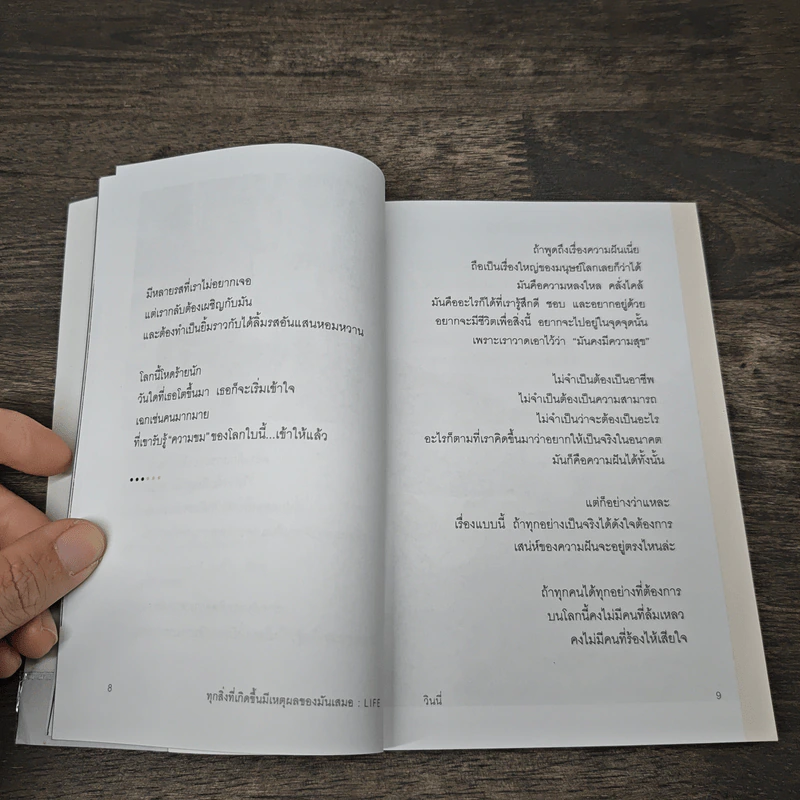 มีหลายรสที่เราไม่อยากเจอ
แต่เรากลับต้องเผชิญกับมัน
และต้องทำเป็นยิ้มราวกับได้ลิ้มรสอันแสนหอมหวาน
โลกนี้โหดร้ายนัก
วันใดที่เธอโตขึ้นมา เธอก็จะเริ่มเข้าใจ
เฉกเช่นคนมากมาย
ที่เขารับรู้ “ความขม” ของโลกใบนี้...เข้าให้แล้ว
••••••
8
ทุกสิ่งที่เกิดขึ้นมีเหตุผลของมันเสมอ : LIFE
ถ้าพูดถึงเรื่องความฝันเนี่ย
ถือเป็นเรื่องใหญ่ของมนุษย์โลกเลยก็ว่าได้
มันคือความหลงใหล คลั่งไคล้
มันคืออะไรก็ได้ที่เรารู้สึกดี ชอบ และอยากอยู่ด้วย
อยากจะมีชีวิตเพื่อสิ่งนี้ อยากจะไปอยู่ในจุดจุดนั้น
เพราะเราวาดเอาไว้ว่า “มันคงมีความสุข”
ไม่จำเป็นต้องเป็นอาชีพ
ไม่จำเป็นต้องเป็นความสามารถ
ไม่จำเป็นว่าจะต้องเป็นอะไร
อะไรก็ตามที่เราคิดขึ้นมาว่าอยากให้เป็นจริงในอนาคต
มันก็คือความฝันได้ทั้งนั้น
แต่ก็อย่างว่าแหละ
เรื่องแบบนี้ ถ้าทุกอย่างเป็นจริงได้ดังใจต้องการ
เสน่ห์ของความฝันจะอยู่ตรงไหนล่ะ
ถ้าทุกคนได้ทุกอย่างที่ต้องการ
บนโลกนี้คงไม่มีคนที่ล้มเหลว
คงไม่มีคนที่ร้องไห้เสียใจ
วินนี่
9